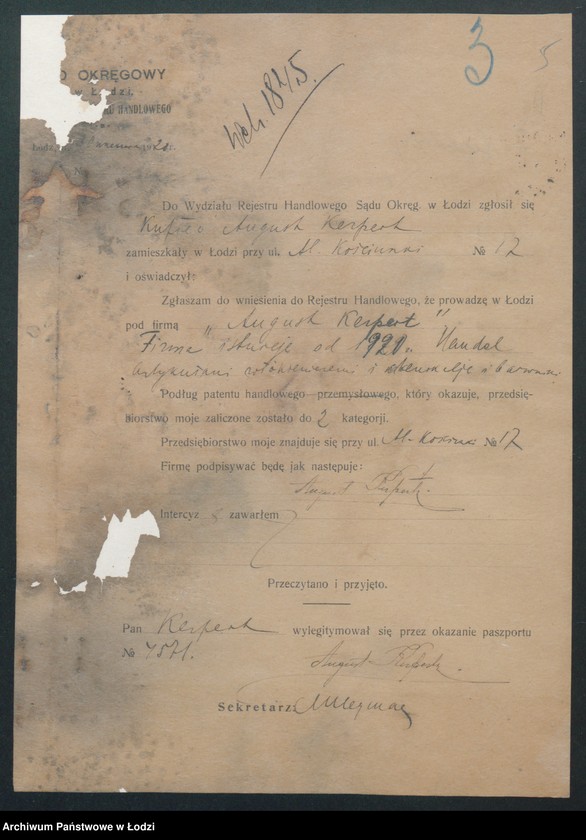 3
5
OKRĘGOWY
w Łodzi.
HANDLOWEGO
Wch. 1821/5.
№
Do Wydziału Rejestru Handlowego Sądu Okręg. w Łodzi zgłosił się
Kupiec August Kerpert
zamieszkały w Łodzi przy ul. Al. Kościuszki № 17
i oświadczył:
Zgłaszam do wniesienia do Rejestru Handlowego, że prowadzę w Łodzi
pod firmą „August Kerpert"
Firma istnieje od 1920 r. Handel
artykułami i
Podług patentu handlowego przemysłowego, który okazuje, przedsię-
biorstwo moje zaliczone zostało do 2 kategorji.
Przedsiębiorstwo moje znajduje się przy ul. Al. № 17
Firmę podpisywać będę jak następuje:
August
Intercyz zawarłem
Przeczytano i przyjęto.
Pan Kerpert wylegitymował się przez okazanie paszportu
№ 4571.
August
Sekretarz:
Archiwum Państwowe w Łodzi